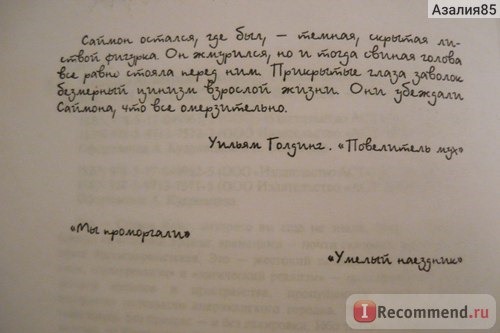 Азалия85
Саймон остался, где был, — темная, скрытая ли-
ствой фигурка. Он жмурился, но и тогда свиная голова
все равно стояла перед ним. Прикрытые глаза заволок
безмерный цинизм взрослой жизни. Они убеждали
Саймона, что все омерзительно.
Уильям Голдинг. «Повелитель мух»
«Мы проморгали»
«Умелый наездник»
I Recommend.ru